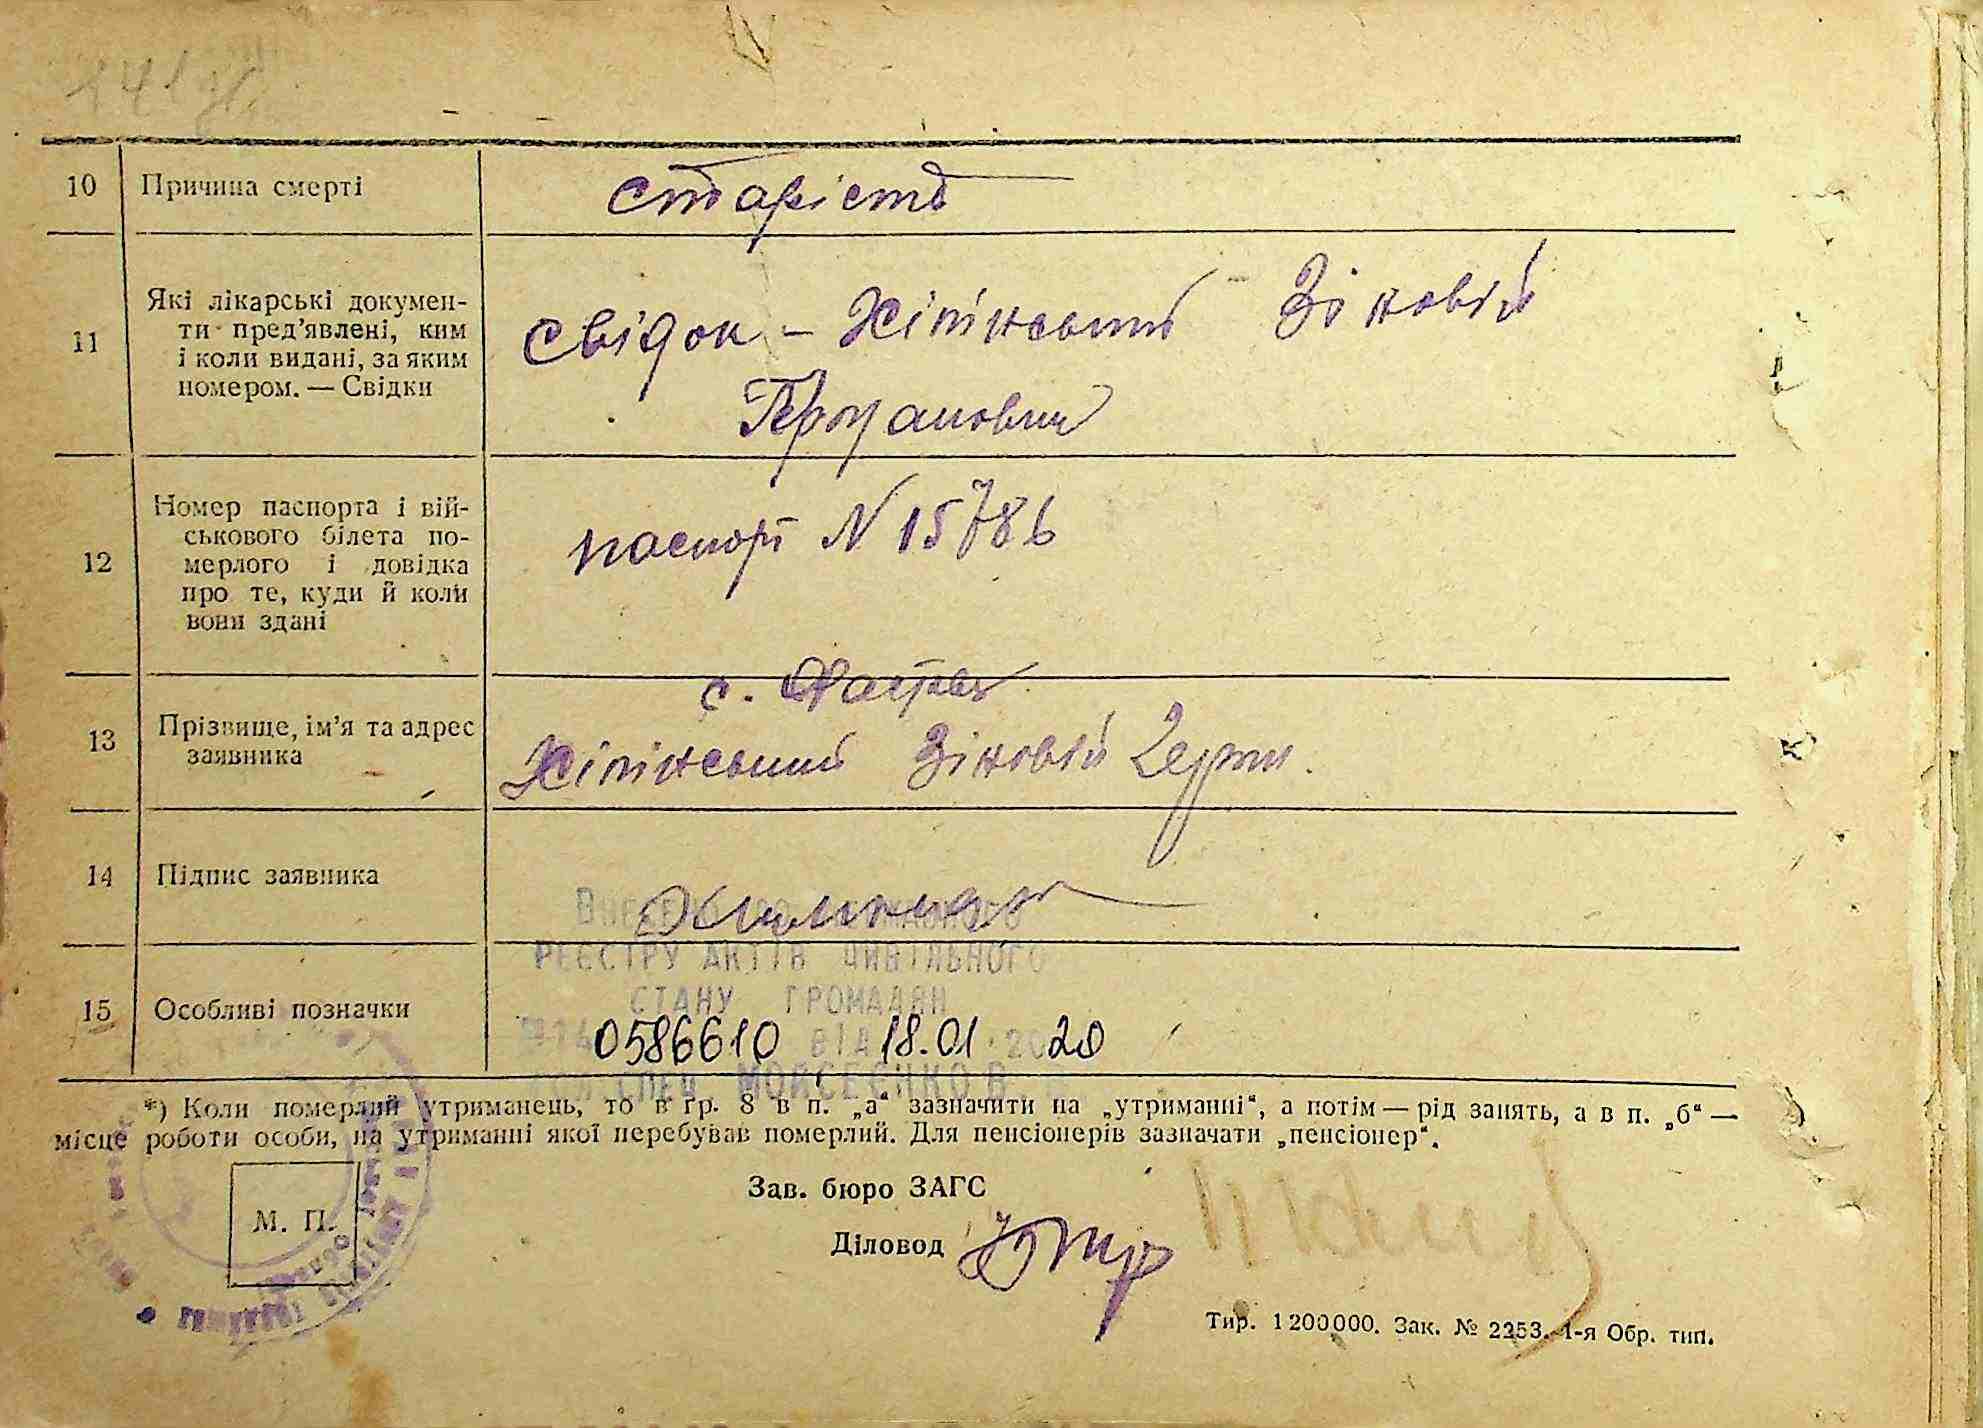 10 Причина смерті
старість
11 Які лікарські докумен-
ти пред’явлені, ким
і коли видані, за яким
номером. — Свідки
свідок – Хіпінський Зіновій
Германович
12 Номер паспорта і вій-
ськового білета по-
мерлого і довідка
про те, куди й коли
вони здані
паспорт N 15786
13 Прізвище, ім’я та адрес
заявника
с.
Хіпінський Зіновій
14 Підпис заявника
15 Особливі позначки
РЕЄСТРУ АКТІВ ЦИВІЛЬНОГО
СТАНУ ГРОМАДЯН
0586610 від 18.01.2020
МОЙСЕЄНКО В
*) Коли померлий утриманець, то в гр. 8 в п. „а“ зазначити на „утриманні“, а потім — рід занять, а в п. „б“ —
місце роботи особи, на утриманні якої перебував померлий. Для пенсіонерів зазначати „пенсіонер“.
Зав. бюро ЗАГС
М. П.
Діловод
Тир. 1200000. Зак. № 2253. 1-я Обр. тип.